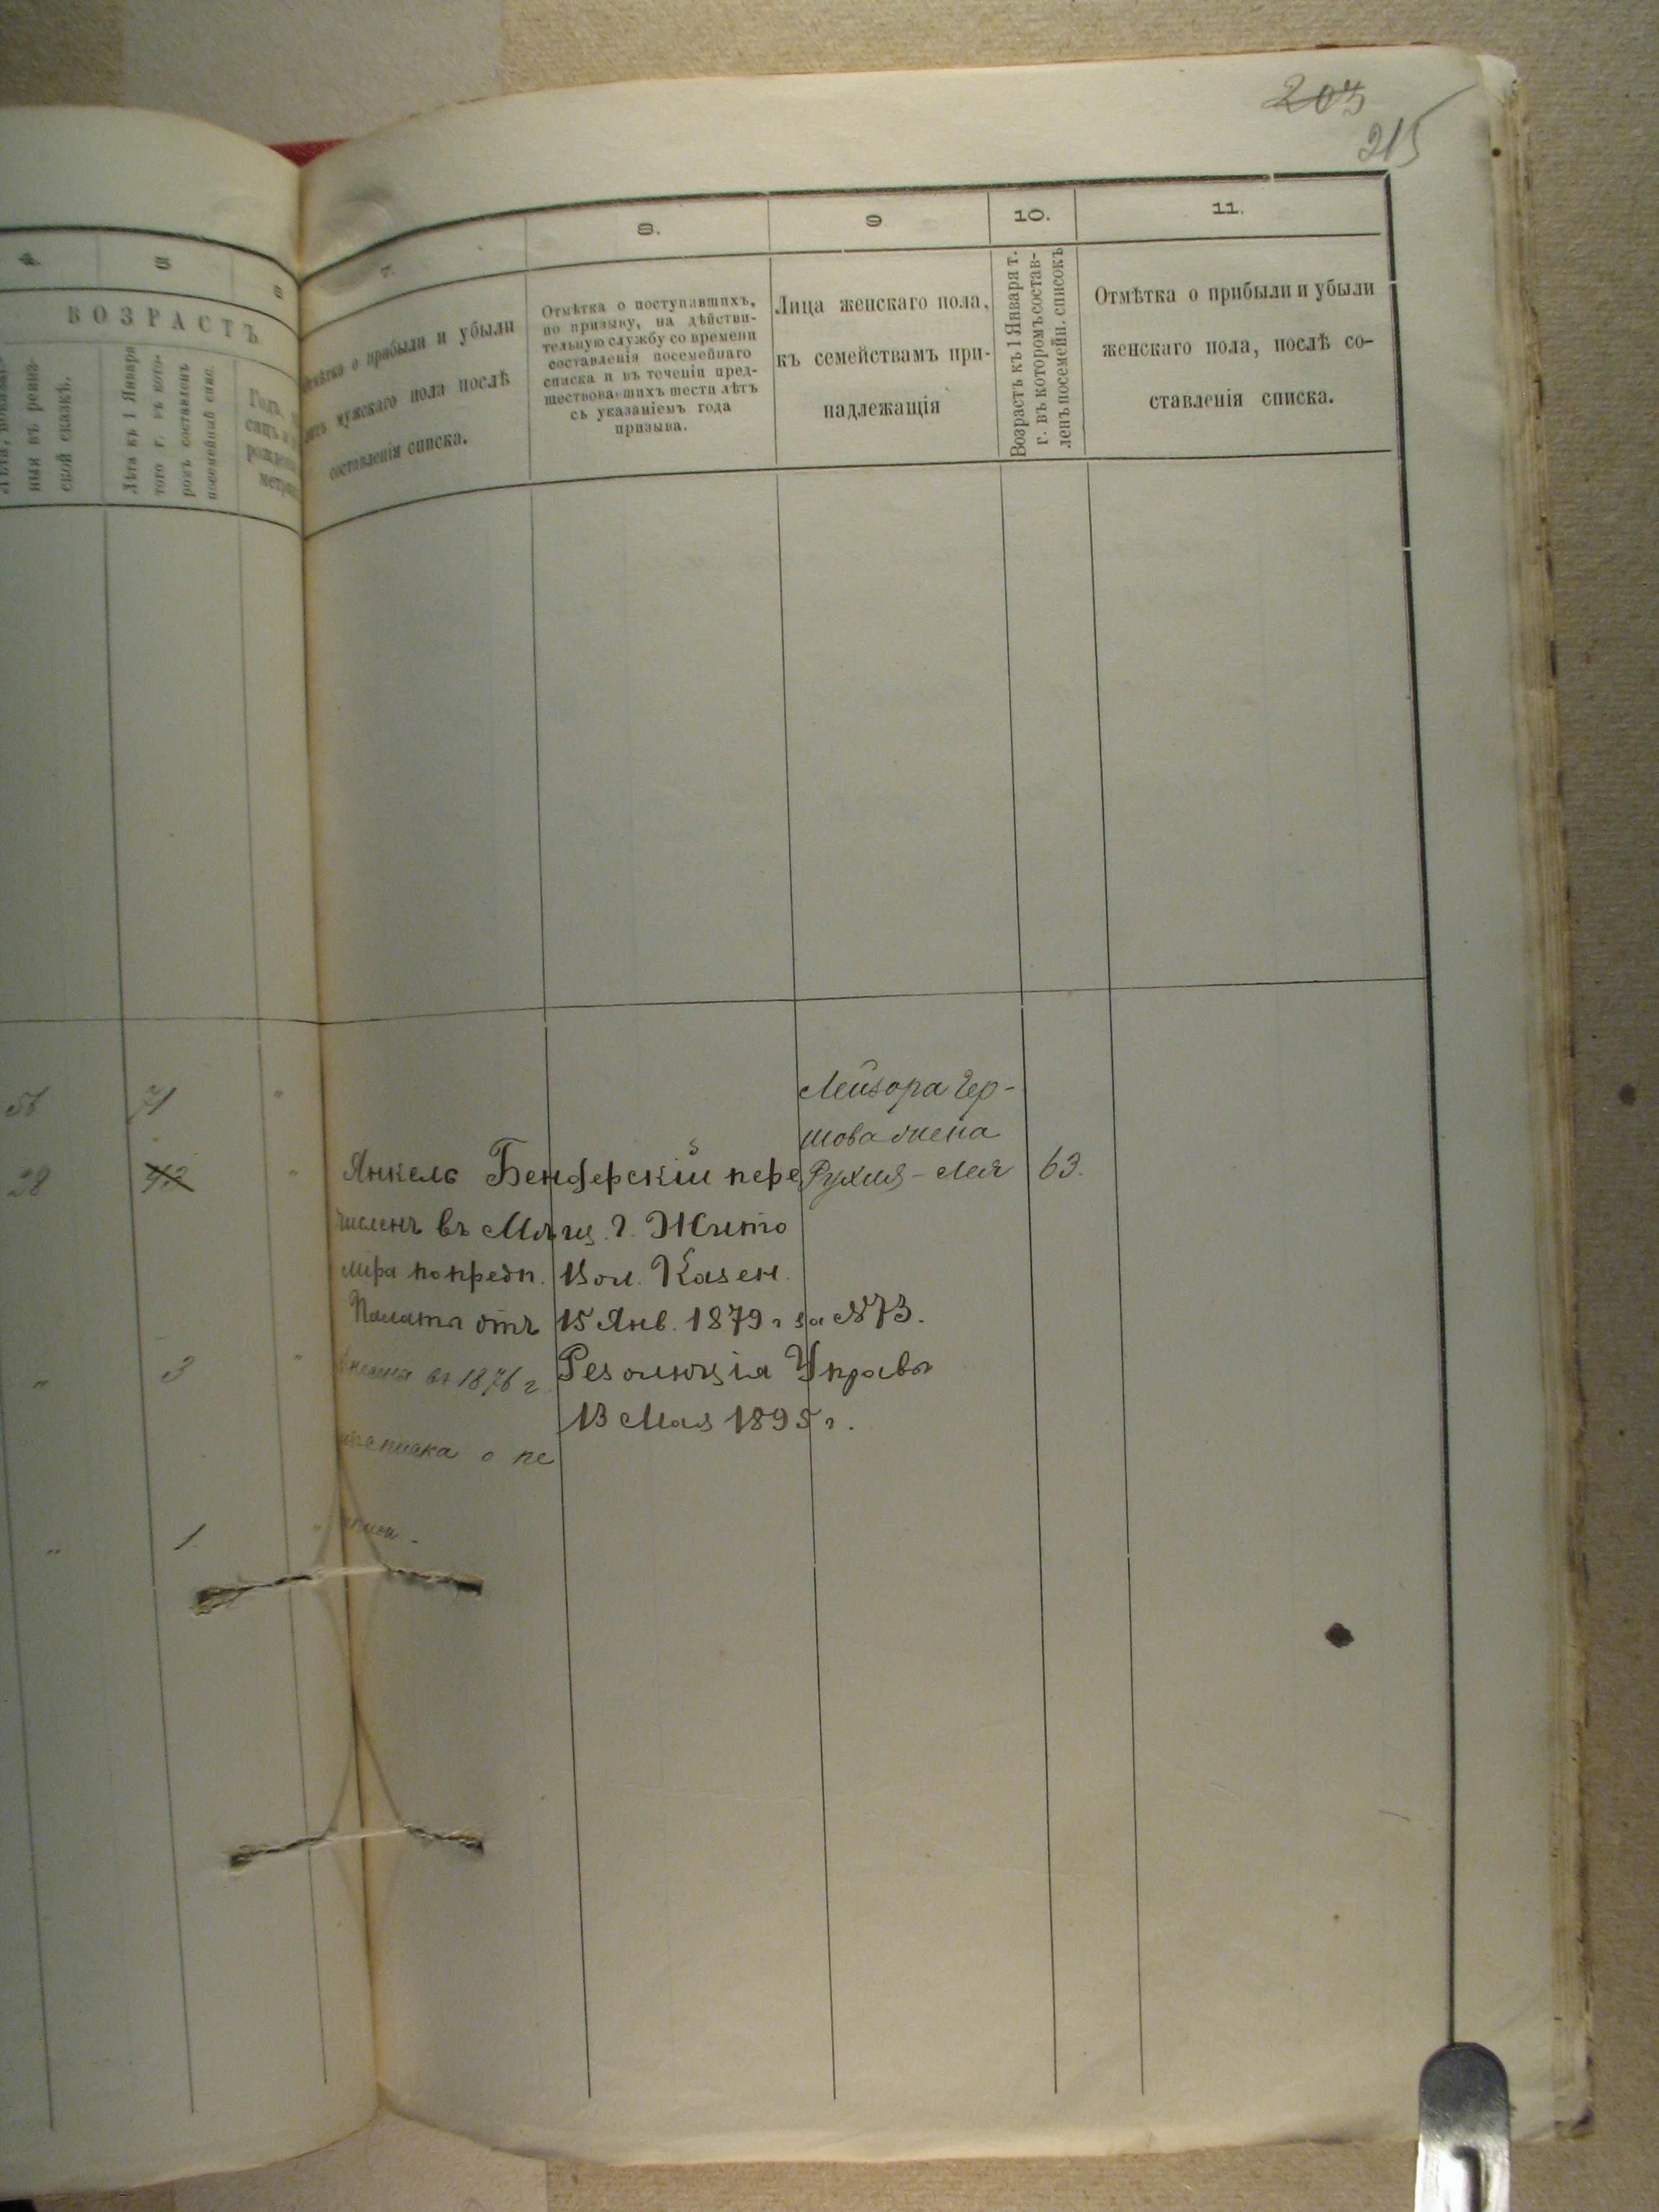 203
215
4.
5
6
ВОЗРАСТЪ
ныя въ ревиз-
ской сказкѣ.
Лѣта къ 1 Января
того г. въ кото-
ромъ составленъ
посемейный спис.
7.
8.
9
10.
11.
Отмѣтка о прибыли и убыли
мужскаго пола послѣ
составленія списка.
Отмѣтка о поступавшихъ,
по призыву, на дѣйстви-
тельную службу со времени
составленія посемейнаго
списка и въ теченіи пред-
шествовавшихъ шести лѣтъ
съ указаніемъ года
призыва.
Лица женскаго пола,
къ семействамъ при-
надлежащія
Возрастъ къ 1 Января т.
г. въ которомъ состав-
ленъ посемейн. списокъ
Отмѣтка о прибыли и убыли
женскаго пола, послѣ со-
ставленія списка.
56 71
28 43
" 3
" 1
Янкель Бендерскій пере
численъ въ Мѣщ. г. Жито
міра по предп. Вол. Казен.
Палаты отъ 15 Янв. 1879 г за №73.
въ 1876 г. Резолюція Управы
13 Мая 1895 г.
о пе
Лейзора Гер-
шова жена
Рухля-Лея 63.